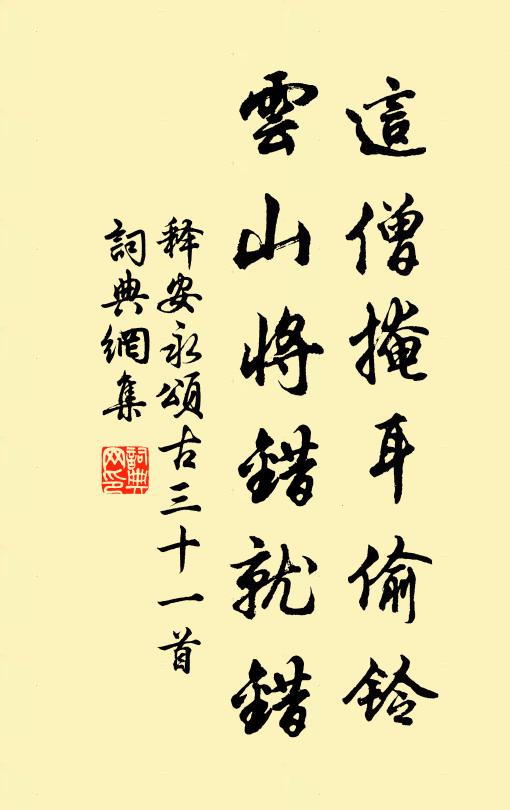 這僧掩耳偷鈴
雲山將錯就錯
釋安永頌古三十一首
詞典網集
詞典網印